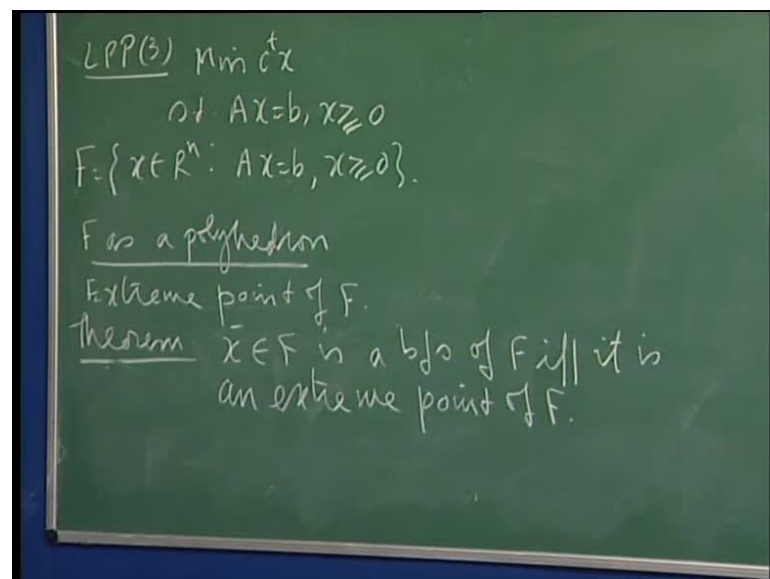 LPP(3) Min cᵗx
s.t Ax=b, x≥0
F={x∈Rⁿ: Ax=b, x≥0}.
F as a polyhedron
Extreme point of F.
Theorem x̄∈F is a bfs of F iff it is
an extreme point of F.